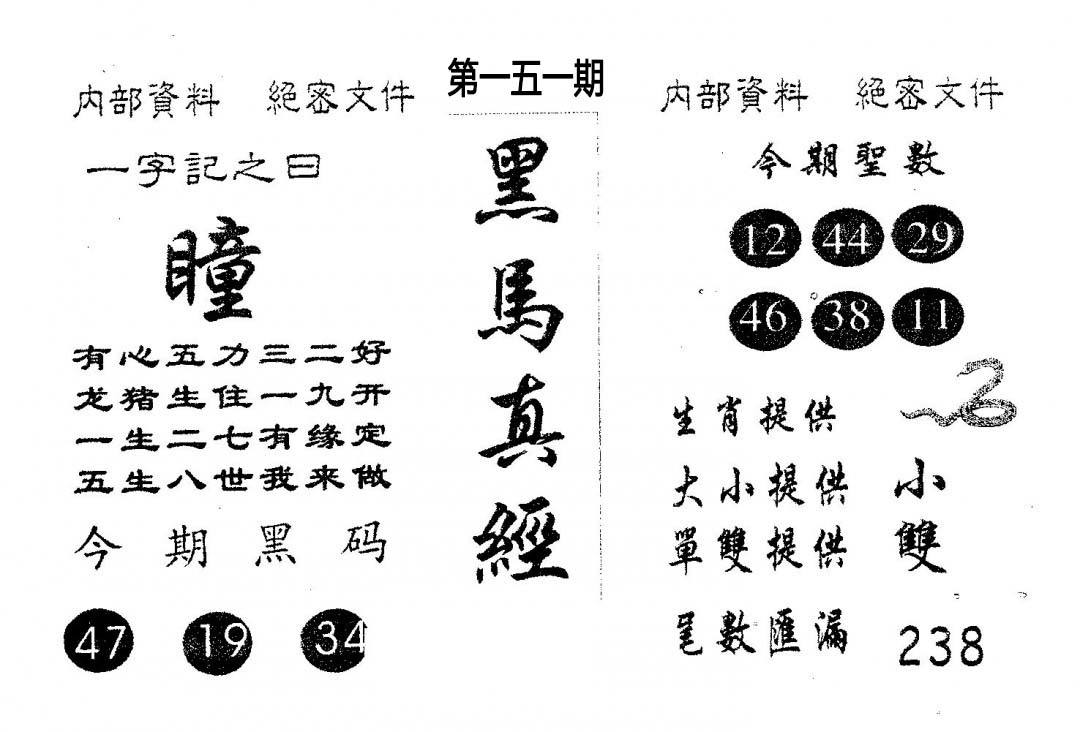 第一五一期
内部資料 絕密文件
一字記之曰
瞳
有心五力三二好
龙猪生住一九开
一生二七有缘定
五生八世我来做
今期黑码
47 19 34
黑馬真經
内部資料 絕密文件
今期聖數
12 44 29
46 38 11
生肖提供
大小提供 小
單雙提供 雙
尾數匯漏 238